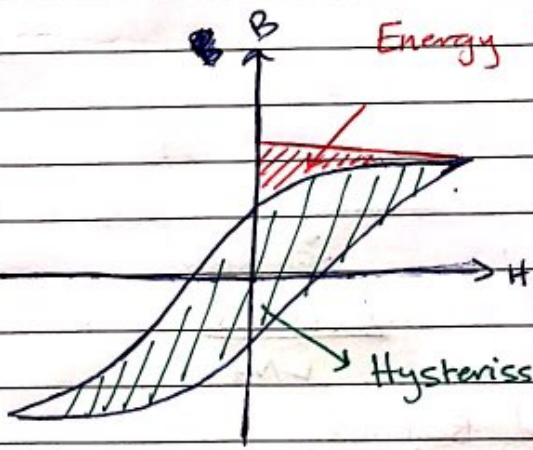 B
Energy
H
Hysteriss